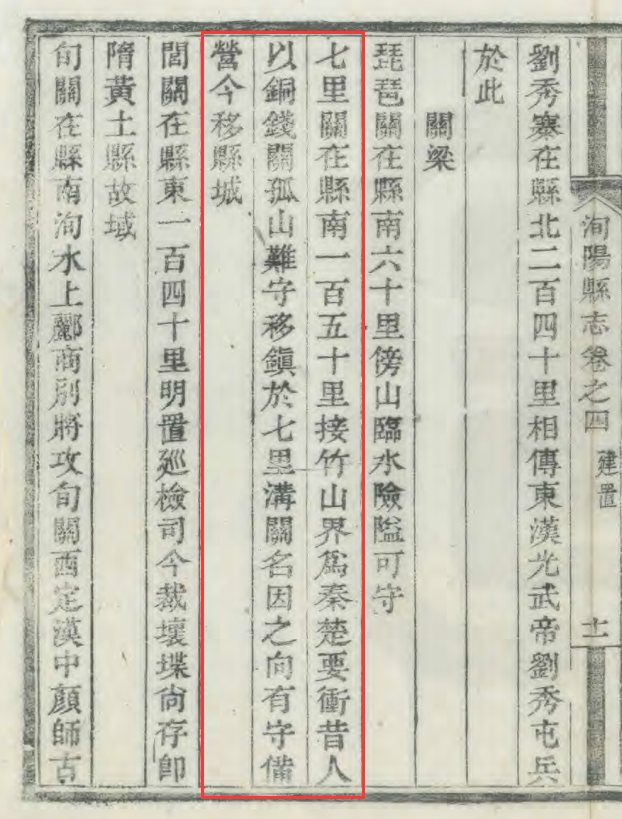 洵陽縣志卷之四
建置
十一
劉秀寨在縣北二百四十里相傳東漢光武帝劉秀屯兵
於此
關梁
琵琶關在縣南六十里傍山臨水險隘可守
七里關在縣南一百五十里接竹山界爲秦楚要衝昔人
以銅錢關孤山難守移鎭於七里溝關名因之向有守備
營今移縣城
閭關在縣東一百四十里明置廵檢司今裁壞堞尙存卽
隋黃土縣故城
旬關在縣南洵水上酈商别將攻旬關西定漢中顏師古